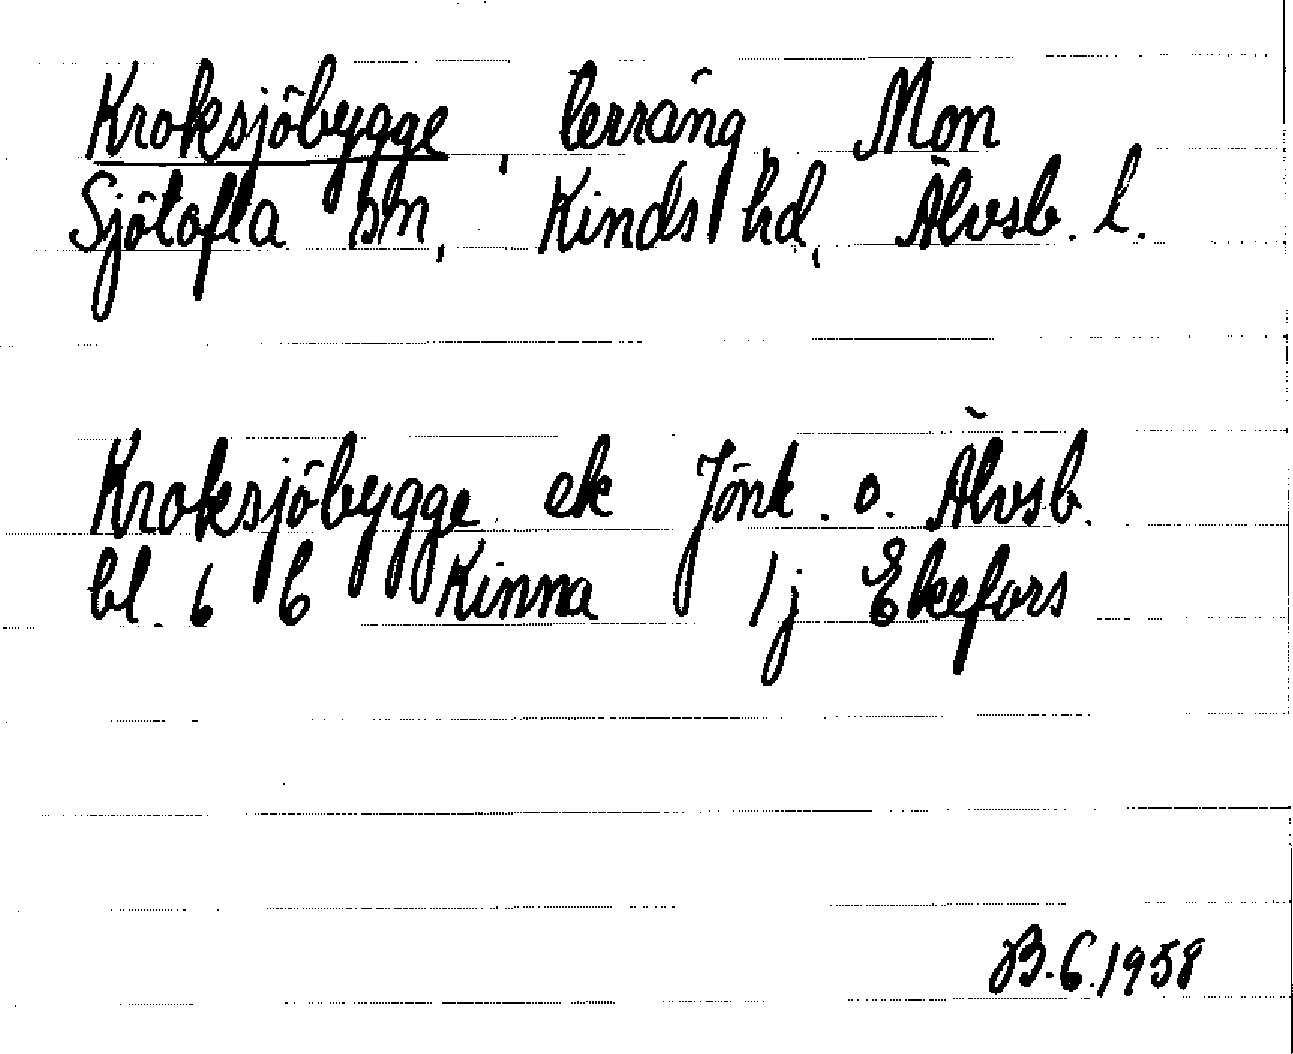 Kroksjöbygge, terräng, Mon
Sjötofta sn, Kinds hd, Älvsb. l.
Kroksjöbygge ek Jönk. o. Älvsb.
bl. 6 b Kinna 1j Ekefors
B.G.1958